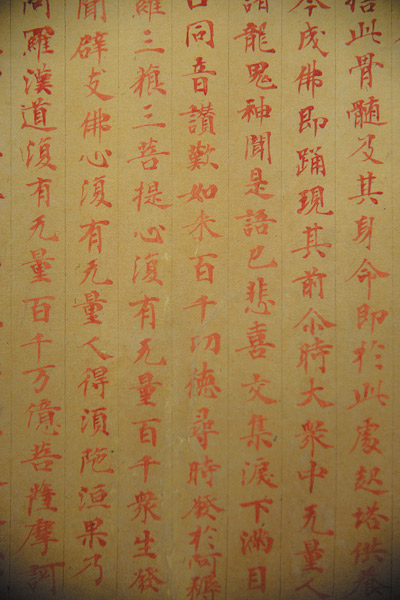 捨此骨髓及其身命即於此處起塔供養
今成佛即踊現其前尒時大衆中无量人
諸龍鬼神聞是語已悲喜交集淚下滿目
口同音讃歎如来百千功德尋時發於阿耨
羅三藐三菩提心復有无量百千衆生發
聞辟支佛心復有无量人得湏陁洹果乃
阿羅漢道復有无量百千万億菩薩摩訶